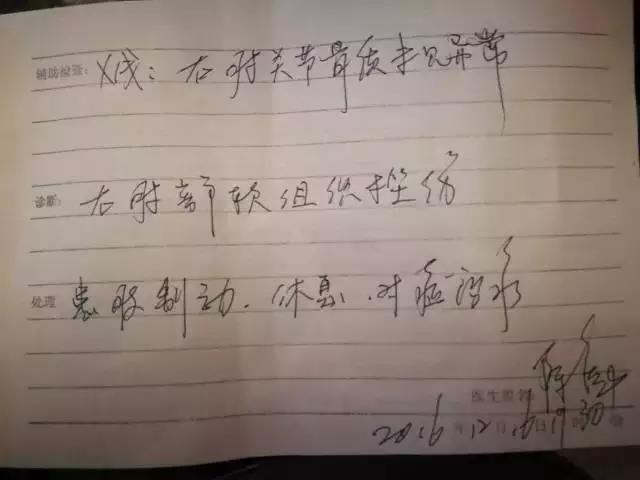 辅助检验: X线：右肘关节骨质未见异常
诊断: 右肘部软组织挫伤
处理 患肢制动.休息.对症治疗
医生签名: 陈
2016年12月6日19时30分